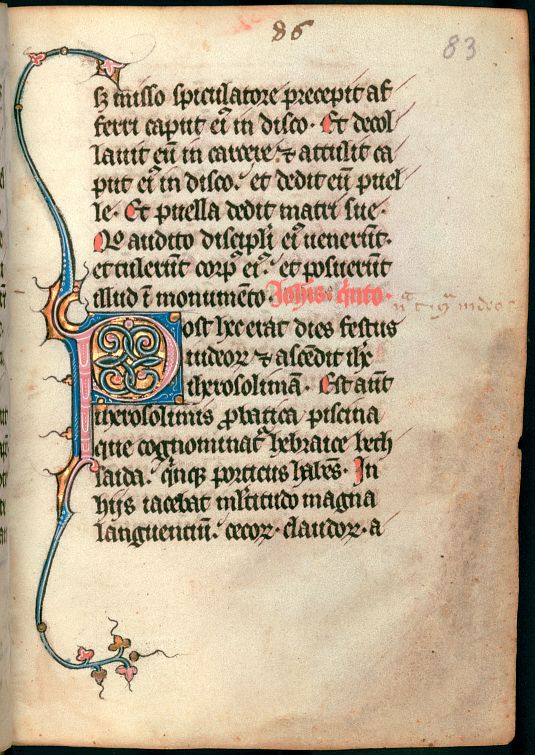 86
83
sz misso spiculatore precepit af
ferri caput eiꝰ in disco. Et decol
lauit eū in carcere. ⁊ attulit ca
put eiꝰ in disco. et dedit eū puel
le. Et puella dedit matri sue.
Qō audito discipli eiꝰ uenerūt.
et tulerūt corpꝰ eiꝰ. et posuerūt
illud ī monumēto. Johīs. qͥnto.
Post hec erat dies festus
iudeoꝝ ⁊ ascēdit ihc
iherosolimā. Est aūt
iherosolimis ꝓbatica piscina
que cognominatᷣ hebraice bech
saida. qͥnqꝫ porticus habēs. In
hijs iacebat mltitudo magna
languenciū. cecoꝝ. claudoꝝ. a